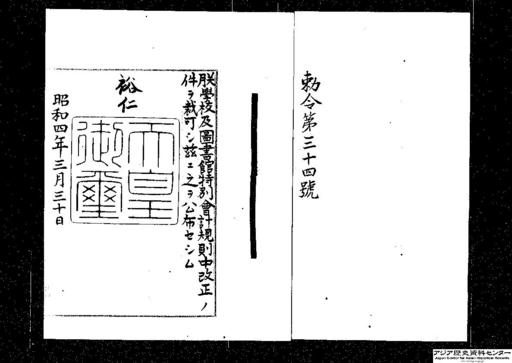 勅令第三十四號
朕學校及圖書館特別會計規則中改正ノ
件ヲ裁可シ茲ニ之ヲ公布セシム
裕仁
天皇
御璽
昭和四年三月三十日
アジア歴史資料センター
Japan Center for Asian Historical Records